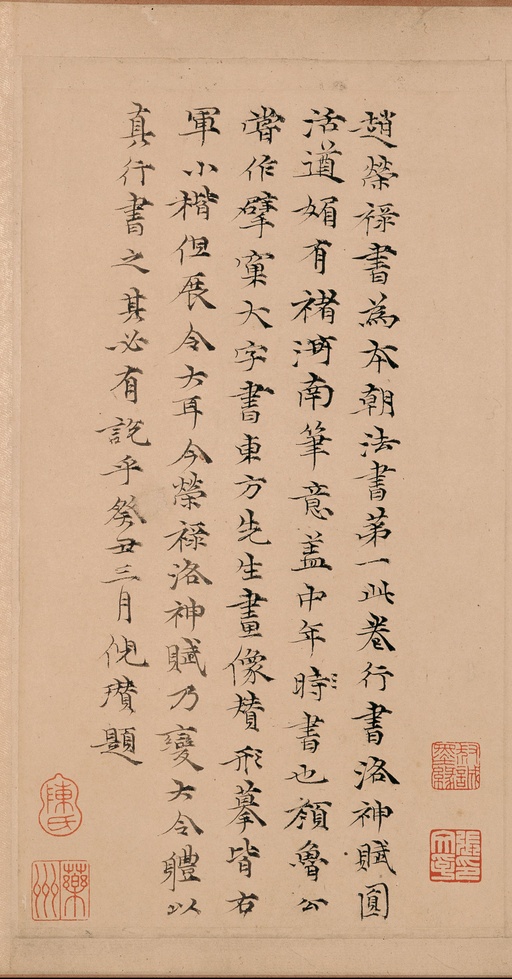 趙榮祿書為本朝法書第一此卷行書洛神賦圓
活遒媚有褚河南筆意蓋中年時書也顏魯公
嘗作擘窠大字書東方先生畫像贊形摹皆右
軍小楷但展令大耳今榮祿洛神賦乃變大令體以
真行書之其必有說乎癸丑三月倪瓚題
陳氏
藥州